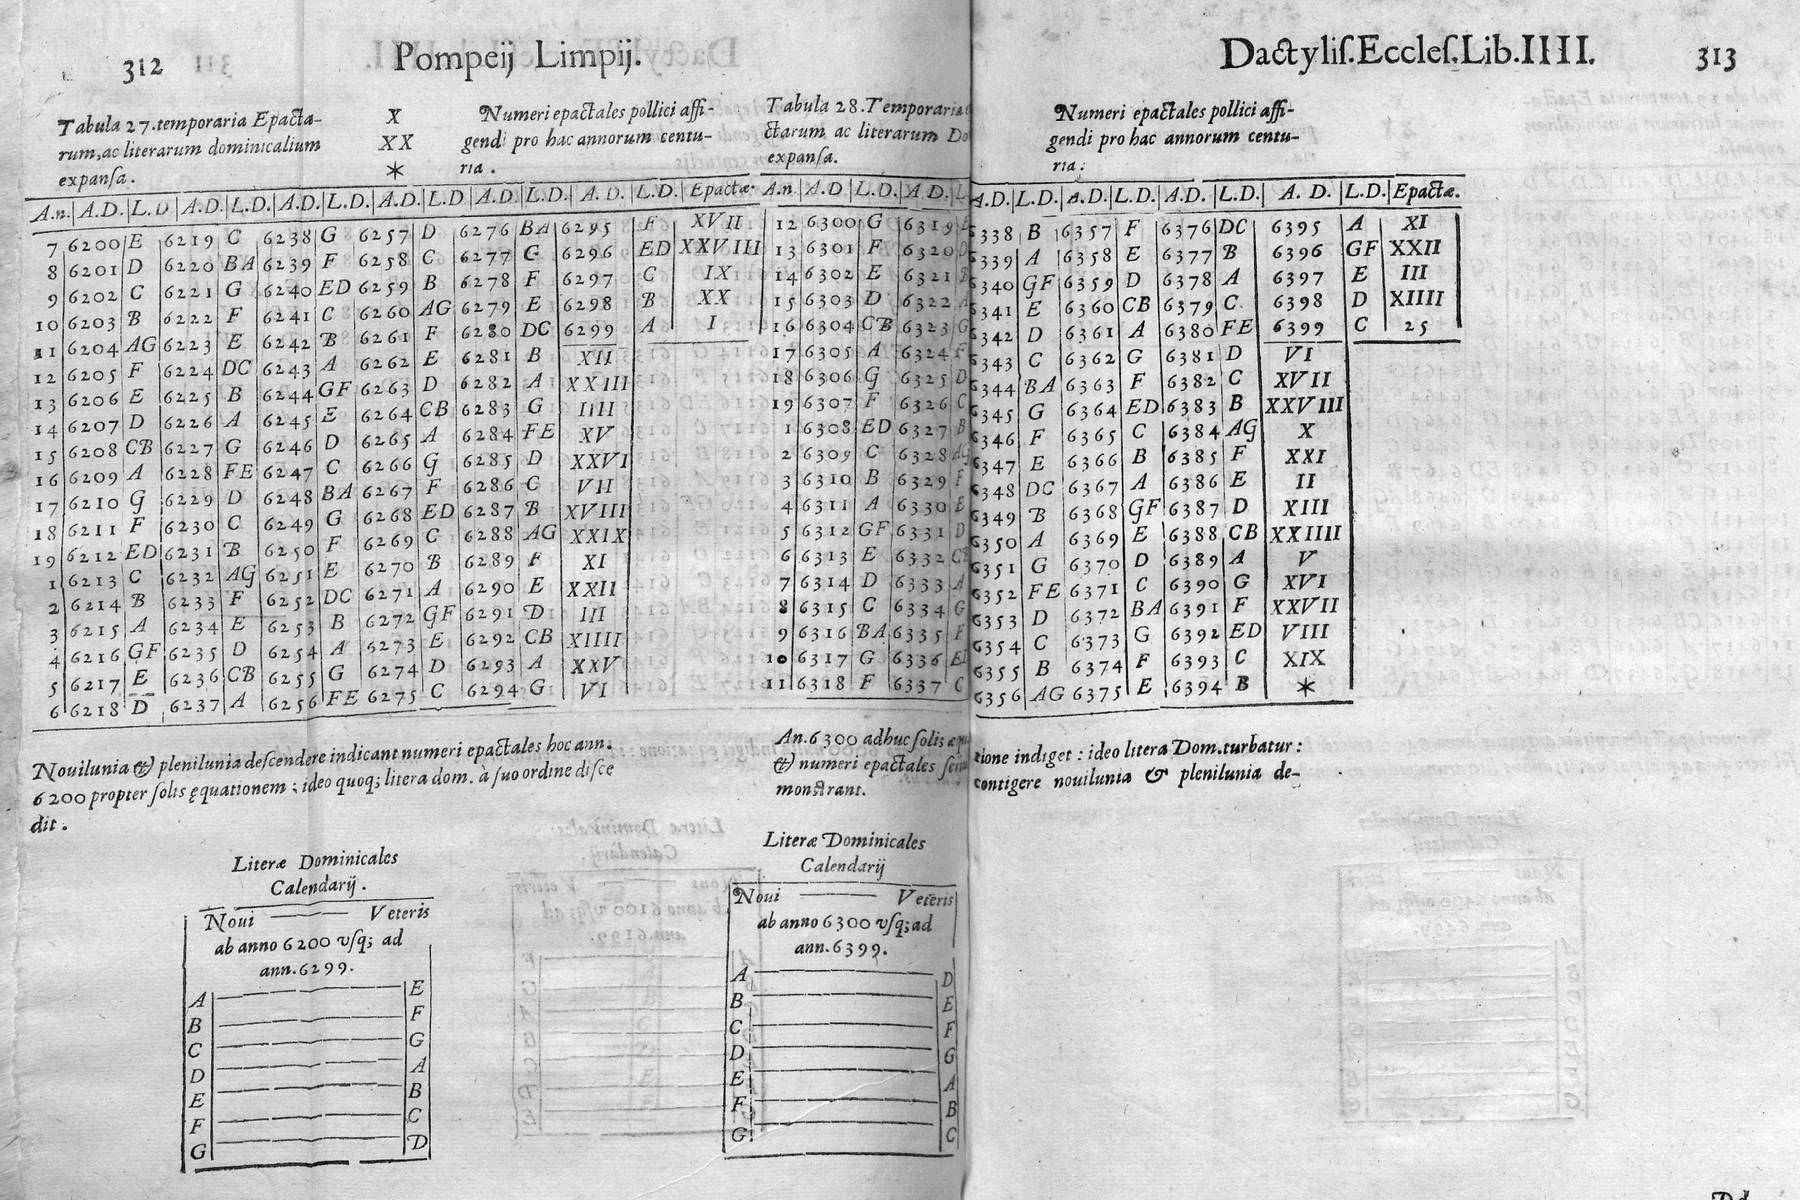 312
Pompeij Limpij.
Tabula 27. temporaria Epacta-
rum, ac literarum dominicalium
expansa.
X
XX
*
Numeri epactales pollici affi-
gendi pro hac annorum centu-
ria.
An. A.D. L.D A.D. L.D. A.D. L.D. A.D. L.D A.D. L.D. A.D. L.D. Epactæ
7 6200 E 6219 C 6238 G 6257 D 6276 BA 6295 F XVII
8 6201 D 6220 BA 6239 F 6258 C 6277 G 6296 ED XXVIII
9 6202 C 6221 G 6240 ED 6259 B 6278 F 6297 C IX
10 6203 B 6222 F 6241 C 6260 AG 6279 E 6298 B XX
11 6204 AG 6223 E 6242 B 6261 F 6280 DC 6299 A I
12 6205 F 6224 DC 6243 A 6262 E 6281 B XII
13 6206 E 6225 B 6244 GF 6263 D 6282 A XXIII
14 6207 D 6226 A 6245 E 6264 CB 6283 G IIII
15 6208 CB 6227 G 6246 D 6265 A 6284 FE XV
16 6209 A 6228 FE 6247 C 6266 G 6285 D XXVI
17 6210 G 6229 D 6248 BA 6267 F 6286 C VII
18 6211 F 6230 C 6249 G 6268 ED 6287 B XVIII
19 6212 ED 6231 B 6250 F 6269 C 6288 AG XXIX
1 6213 C 6232 AG 6251 E 6270 B 6289 F XI
2 6214 B 6233 F 6252 DC 6271 A 6290 E XXII
3 6215 A 6234 E 6253 B 6272 GF 6291 D III
4 6216 GF 6235 D 6254 A 6273 E 6292 CB XIIII
5 6217 E 6236 CB 6255 G 6274 D 6293 A XXV
6 6218 D 6237 A 6256 FE 6275 C 6294 G VI
Nouilunia & plenilunia descendere indicant numeri epactales hoc ann.
6200 propter solis ęquationem; ideo quoq; litera dom. à suo ordine disce
dit.
Literæ Dominicales
Calendarij.
Noui Veteris
ab anno 6200 vsq; ad
ann. 6299.
A E
B F
C G
D A
E B
F C
G D
Tabula 28. Temporaria
ctarum ac literarum Do
expansa.
An A.D L.D. A.D.
12 6300 G 6319 E
13 6301 F 6320 D
14 6302 E 6321 B
15 6303 D 6322 A
16 6304 CB 6323 G
17 6305 A 6324 F
18 6306 G 6325 D
19 6307 F 6326 C
1 6308 ED 6327 B
2 6309 C 6328 AG
3 6310 B 6329 F
4 6311 A 6330 E
5 6312 GF 6331 D
6 6313 E 6332 CB
7 6314 D 6333 A
8 6315 C 6334 G
9 6316 BA 6335 F
10 6317 G 6336 ED
11 6318 F 6337 C
An. 6300 adhuc solis
& numeri epactales
monstrant.
Literæ Dominicales
Calendarij
Noui Veteris
ab anno 6300 vsq; ad
ann. 6399.
A D
B E
C F
D G
E A
F B
G C
Dactylis. Eccles. Lib. IIII.
313
Numeri epactales pollici affi-
gendi pro hac annorum centu-
ria:
A.D. L.D. A.D. L.D. A.D. L.D. A.D. L.D. Epactæ.
6338 B 6357 F 6376 DC 6395 A XI
6339 A 6358 E 6377 B 6396 GF XXII
6340 GF 6359 D 6378 A 6397 E III
6341 E 6360 CB 6379 C 6398 D XIIII
6342 D 6361 A 6380 FE 6399 C 25
6343 C 6362 G 6381 D VI
6344 BA 6363 F 6382 C XVII
6345 G 6364 ED 6383 B XXVIII
6346 F 6365 C 6384 AG X
6347 E 6366 B 6385 F XXI
6348 DC 6367 A 6386 E II
6349 B 6368 GF 6387 D XIII
6350 A 6369 E 6388 CB XXIIII
6351 G 6370 D 6389 A V
6352 FE 6371 C 6390 G XVI
6353 D 6372 BA 6391 F XXVII
6354 C 6373 G 6392 ED VIII
6355 B 6374 F 6393 C XIX
6356 AG 6375 E 6394 B *
tione indiget: ideo litera Dom. turbatur:
contigere nouilunia & plenilunia de-